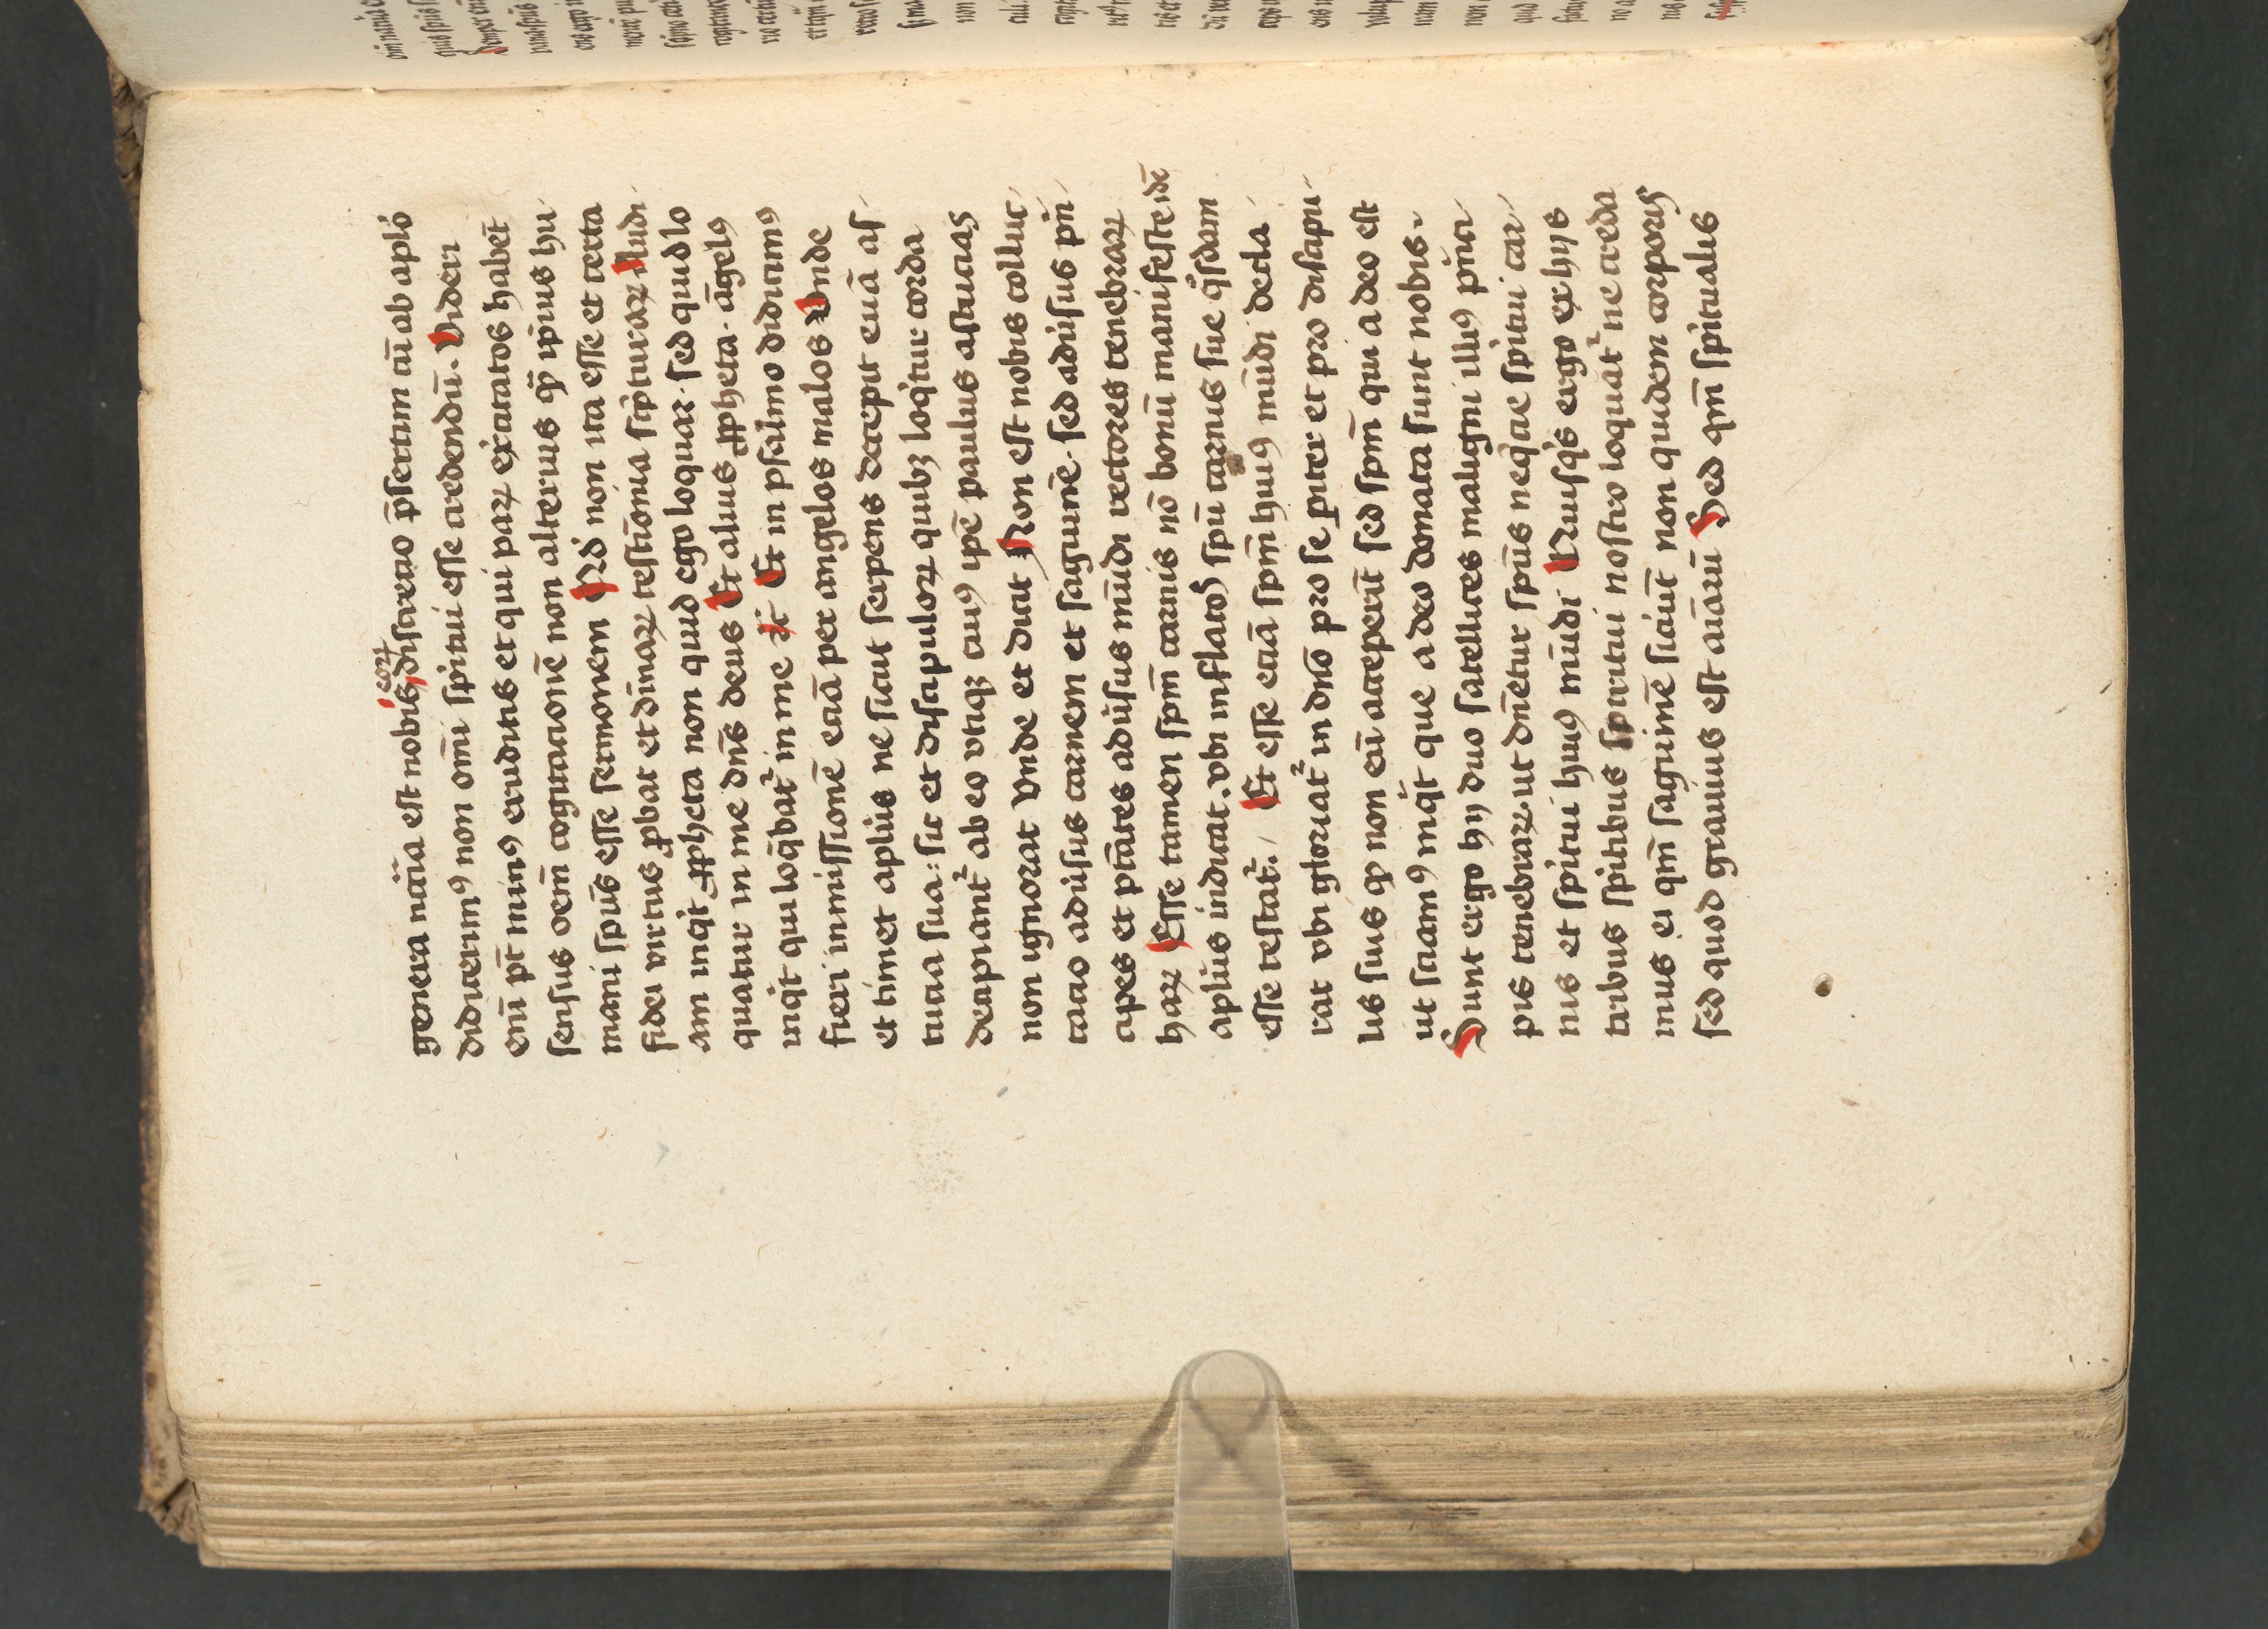 genera nec̄ia est nobis, eoꝝ discrecio p̄sertim cū ab aplo
didicerimꝰ non om̄i spiritui esse credendū. Videri
enī pt̄ minꝰ eruditis et qui paꝝ excitatos habēt
sensus oēm cogitacionē non alterius qͣ ip̄ius hu
mani spūs esse sermonem Nō non ita esse et certa
fidei virtus ꝓbat et diuinaꝝ testiōnia sc̄pturaꝝ Audi
am inqͥt ꝓpheta non quid ego loquar. sed quid lo
quatur in me dn̄s deus Et alius ꝓpheta. āgelꝰ
inqͥt qui loq̄batᷣ in me ⁊c̄ Et in psalmo didicimꝰ
fieri inmissionē eciā per angelos malos Vnde
et timet aplūs ne sicut serpens decepit euā as
tucia sua: sic et discipuloꝝ quibꝫ loqͥtur corda
decipiantᷣ ab eo vtiqꝫ cuiꝰ ip̄e paulus astucias
non ignorat Vnde et dicit Non est nobis colluc
tacio adūsus carnem et sāguinē. sed adūsus pͥn
cipes et ptātes adūsus mūdi rectores tenebraꝝ
haꝝ Esse tamen spm̄ carnis nō bonū manifeste idē
aplūs indicat. vbi inflatos spū carnis sue qͦsdam
esse testatᷣ. Et esse eciā spm̄ huiꝰ mūdi decla
rat vbi gloriatᷣ in dn̄o pro se piter et pro discipu
lis suis ꝙ non eū acceperīt sed spm̄ qui a deo est
ut sciamꝰ inqͥt que a deo donata sunt nobis.
Sunt ergo hij duo satellites maligni illiꝰ pͥnci
pis tenebraꝝ ut dn̄etur spūs neqͥcie spiritui car
nis et spiritui huiꝰ mūdi Quisqͥs ergo ex hijs
tribus spiritibus spiritui nostro loquatᷣ ne creda
mus ei qm̄ sāguinē siciūt non quidem corporis
sed quod grauius est aīarū Sed qm̄ spiritualis